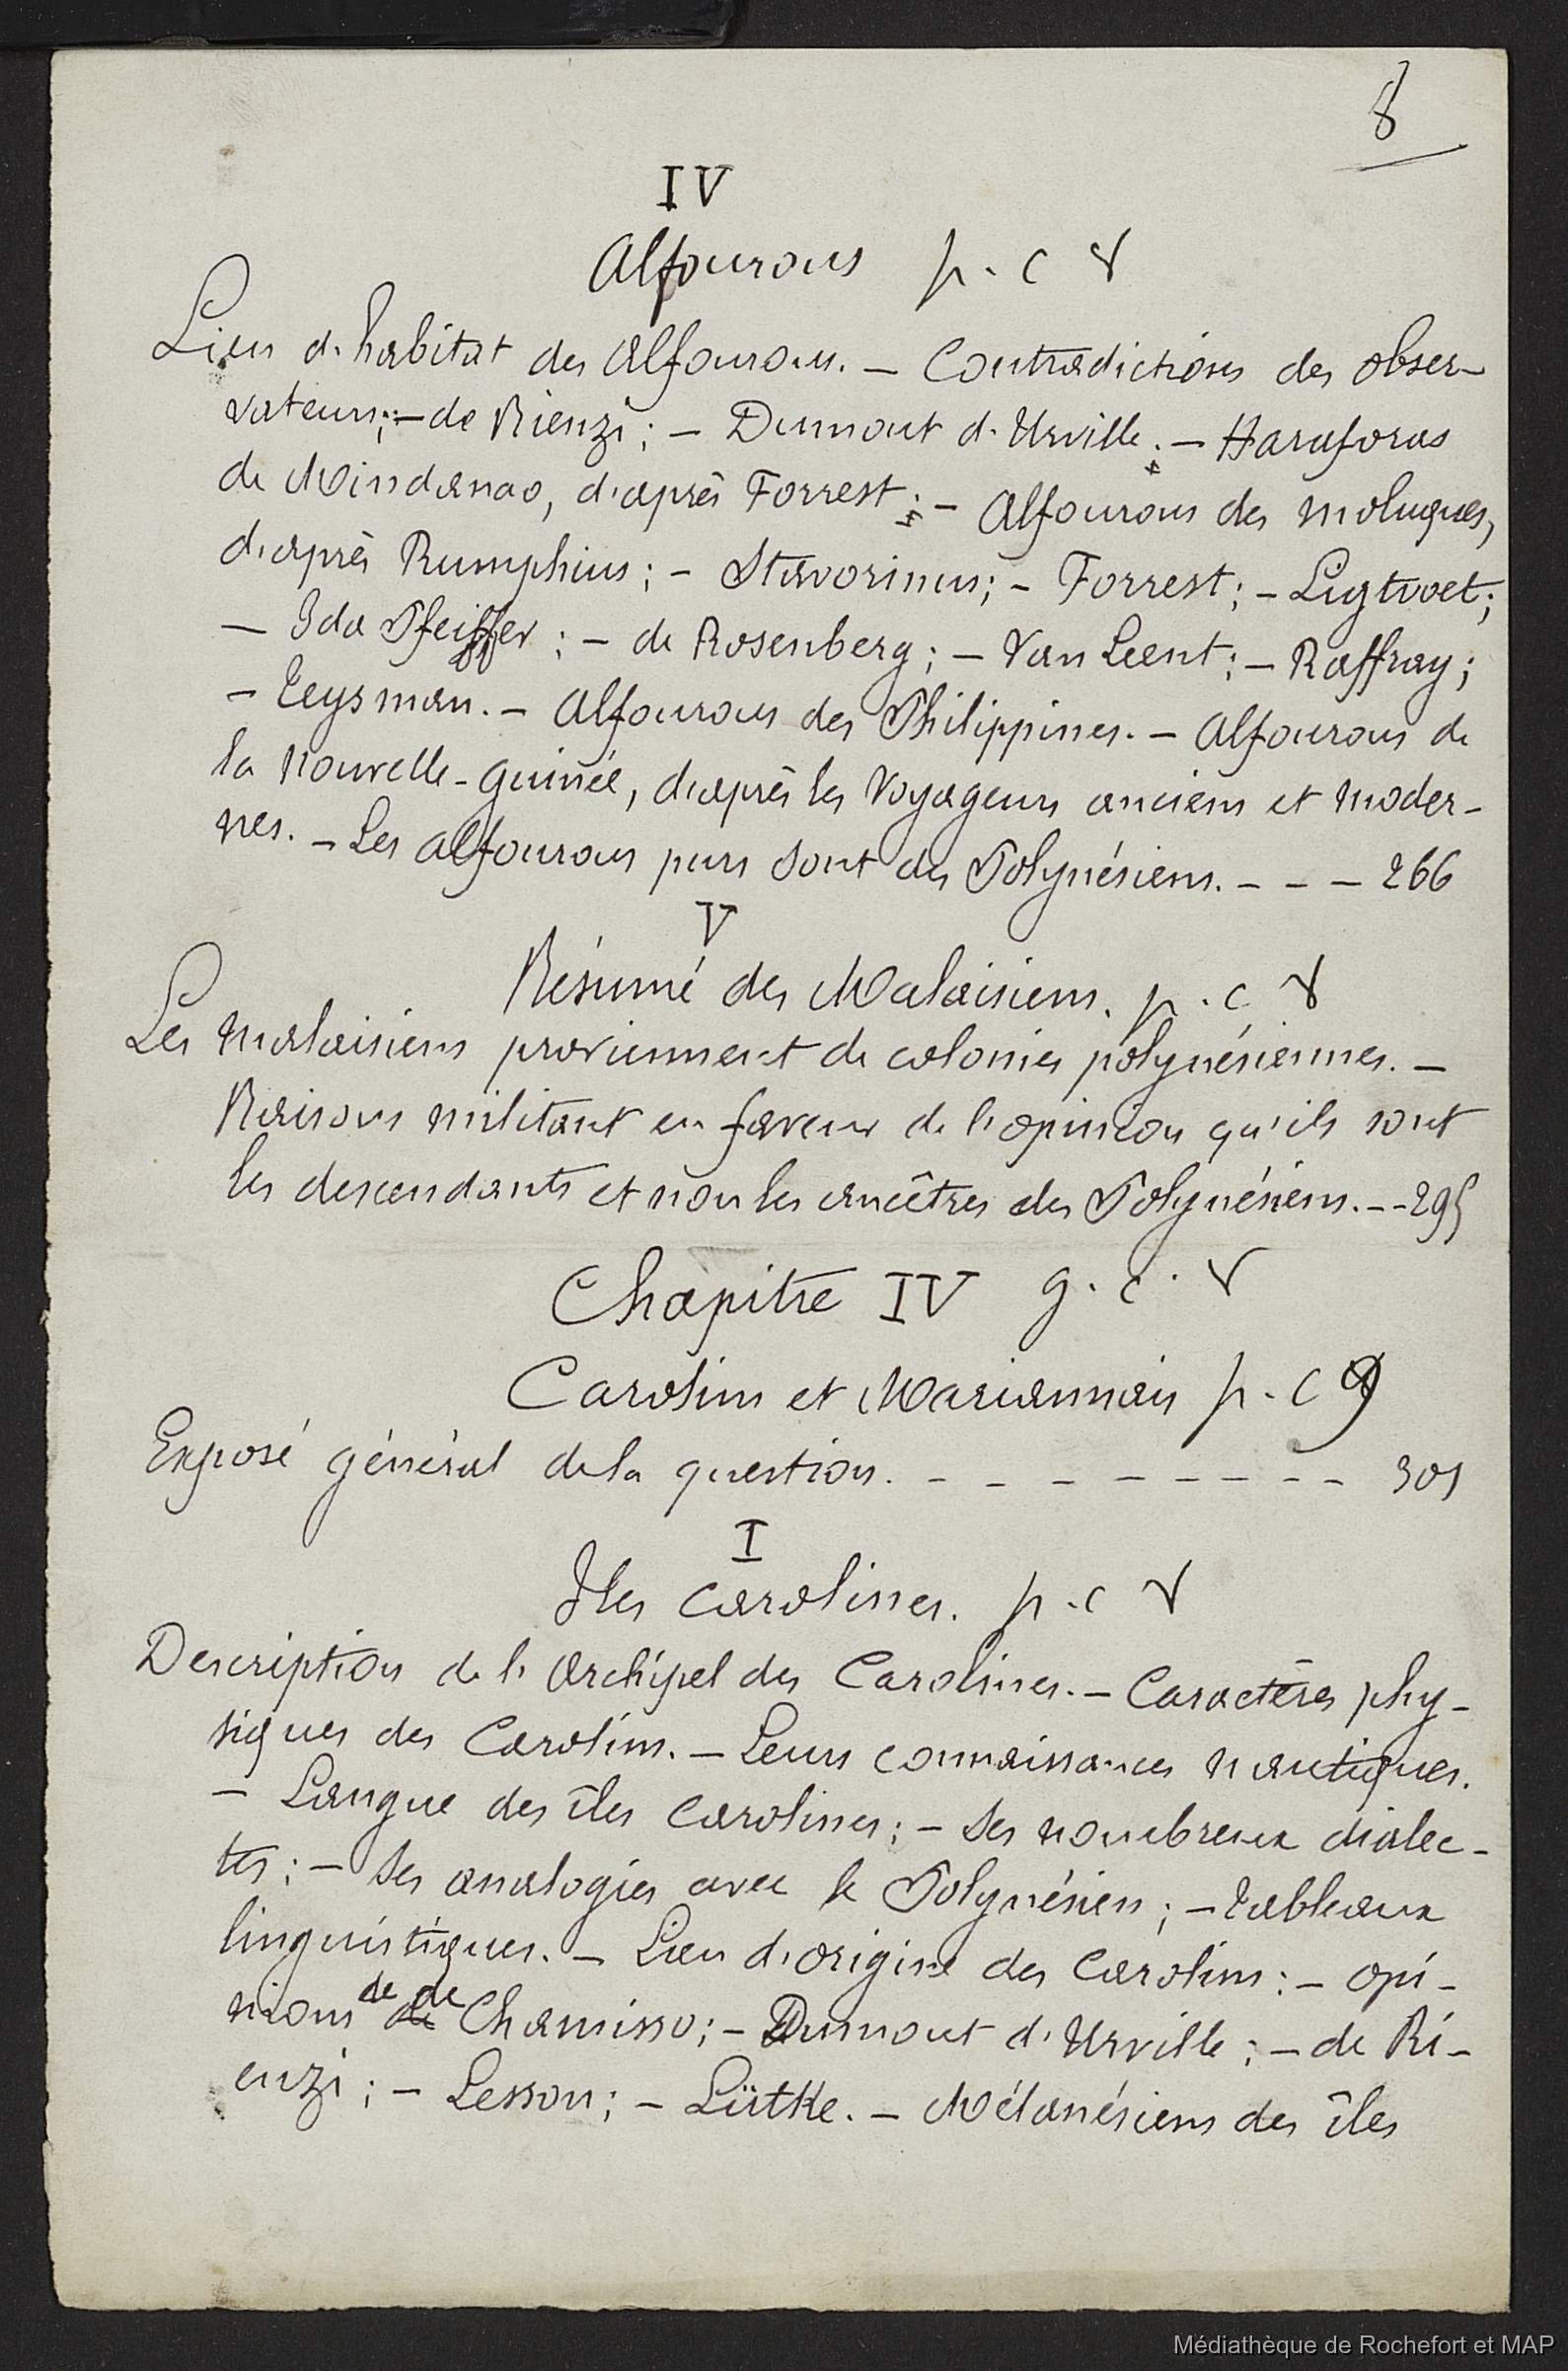 8
IV
Alfourous p. c 8
Lieu d'habitat des Alfourous. — Contradictions des obser-
vateurs; — de Rienzi; — Dumont d'Urville; — Haraforas
de Mindanao, d'après Forrest; — Alfourous des Moluques,
d'après Rumphius; — Stavorinus; — Forrest; — Ligtvoet;
— Ida Pfeiffer; — de Rosenberg; — Van Leent; — Raffray;
— Teysman. — Alfourous des Philippines. — Alfourous de
la Nouvelle-Guinée, d'après les Voyageurs anciens et moder-
nes. — Les Alfourous purs sont des Polynésiens. - - - 266
V
Résumé des Malaisiens. p. c. 8
Les Malaisiens proviennent de colonies polynésiennes. —
Raisons militant en faveur de l'opinion qu'ils sont
les descendants et non les ancêtres des Polynésiens. -- 295
Chapitre IV g. c. 8
Carolins et Mariannais p. c 9
Exposé général de la question. - - - - - - - - - 301
I
Iles Carolines. p. c 8
Description de l'Archipel des Carolines. — Caractères phy-
siques des Carolins. — Leurs connaissances nautiques.
— Langue des îles Carolines; — Ses nombreux dialec-
tes; — Ses analogies avec le Polynésien; — Tableaux
linguistiques. — Lieu d'origine des Carolins: — opi-
nions de de Chamisso; — Dumont d'Urville; — de Ri-
enzi; — Lesson; — Lütke. — Mélanésiens des îles
Médiathèque de Rochefort et MAP